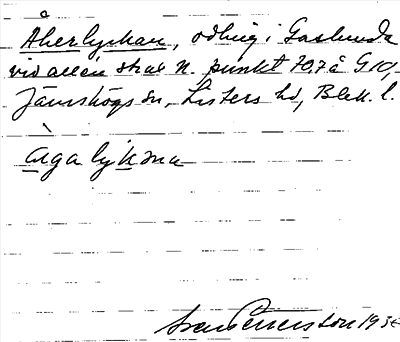 Åkerlyckan, odling i Gaslunda
vid allén strax N. punkt 70,7 å G10,
Jämshögs sn, Listers hd, Blek. l.
àga lykəna
Sven Petersson 193